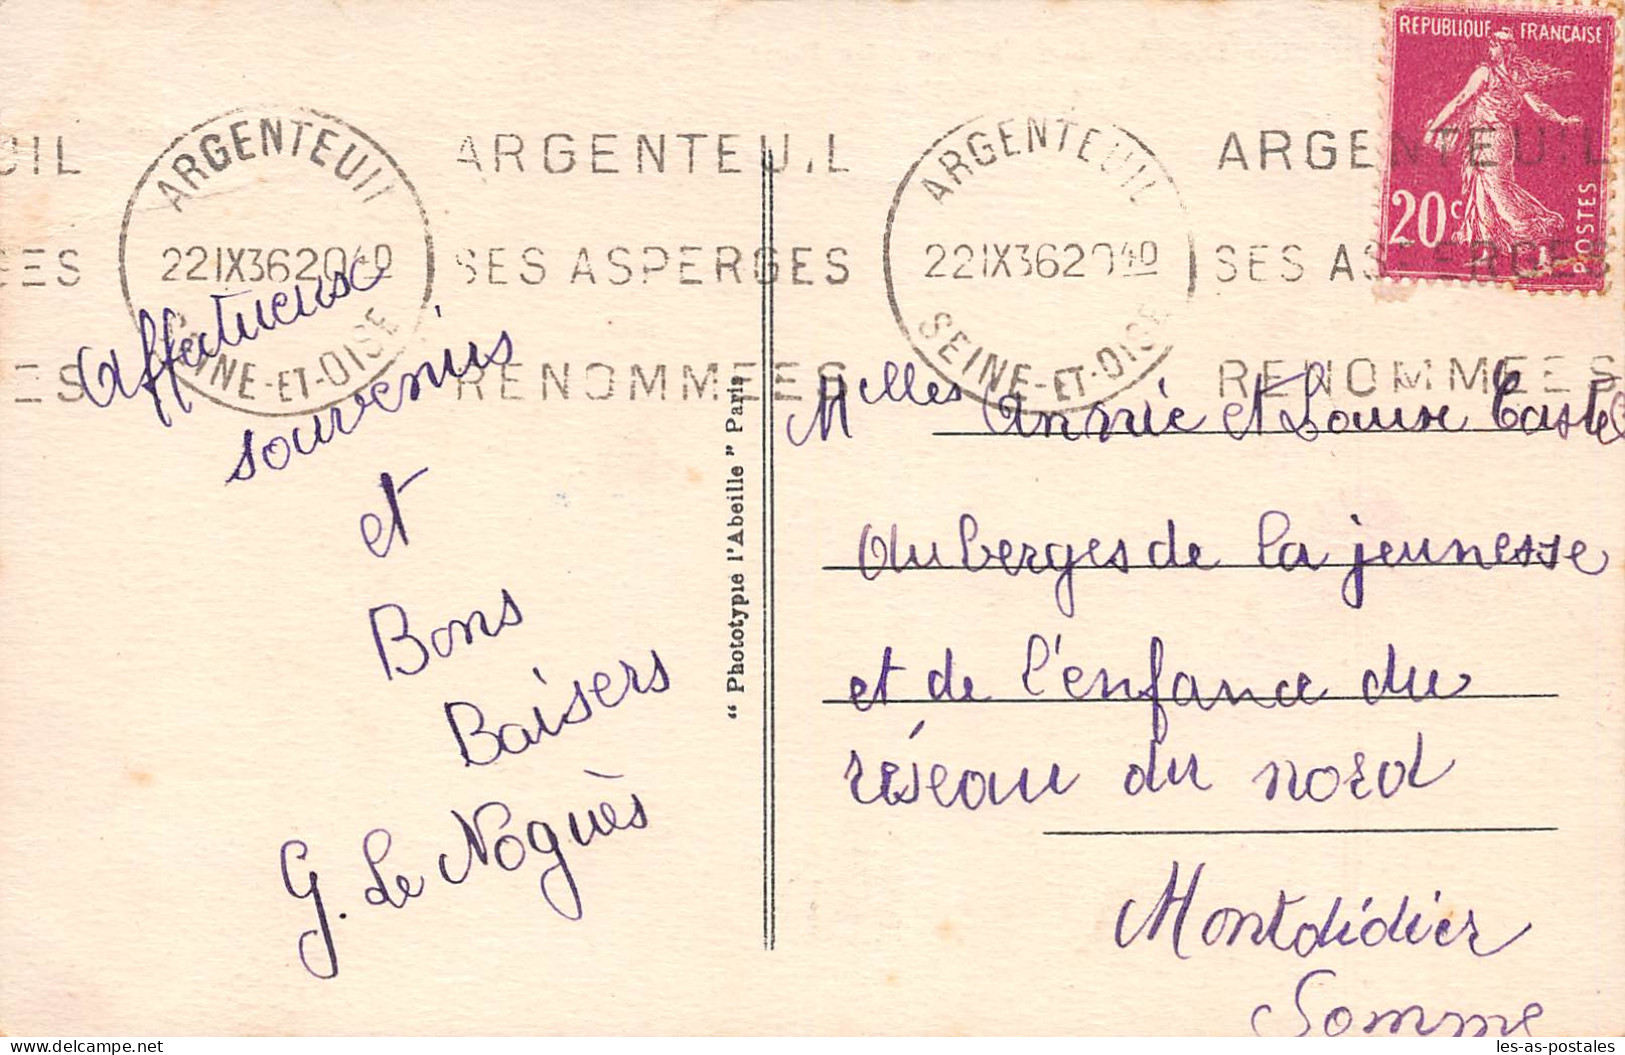 REPUBLIQUE FRANÇAISE
20c
POSTES
UIL
GES
ES
ARGENTEUIL
22 IX 36 20 40
SEINE-ET-OISE
ARGENTEUIL
SES ASPERGES
RENOMMEES
ARGENTEUIL
22 IX 36 20 40
SEINE-ET-OISE
ARGENTEUIL
SES ASPERGES
RENOMMEES
Affatueuse
souvenirs
et
Bons
Baisers
G. Le Noguès
" Phototypie l'Abeille " Paris
Melles Annie et Louise Castel
Auberges de la jeunesse
et de l'enfance du
réseau du nord
Montdidier
Somme
delcampe.net
les-as-postales